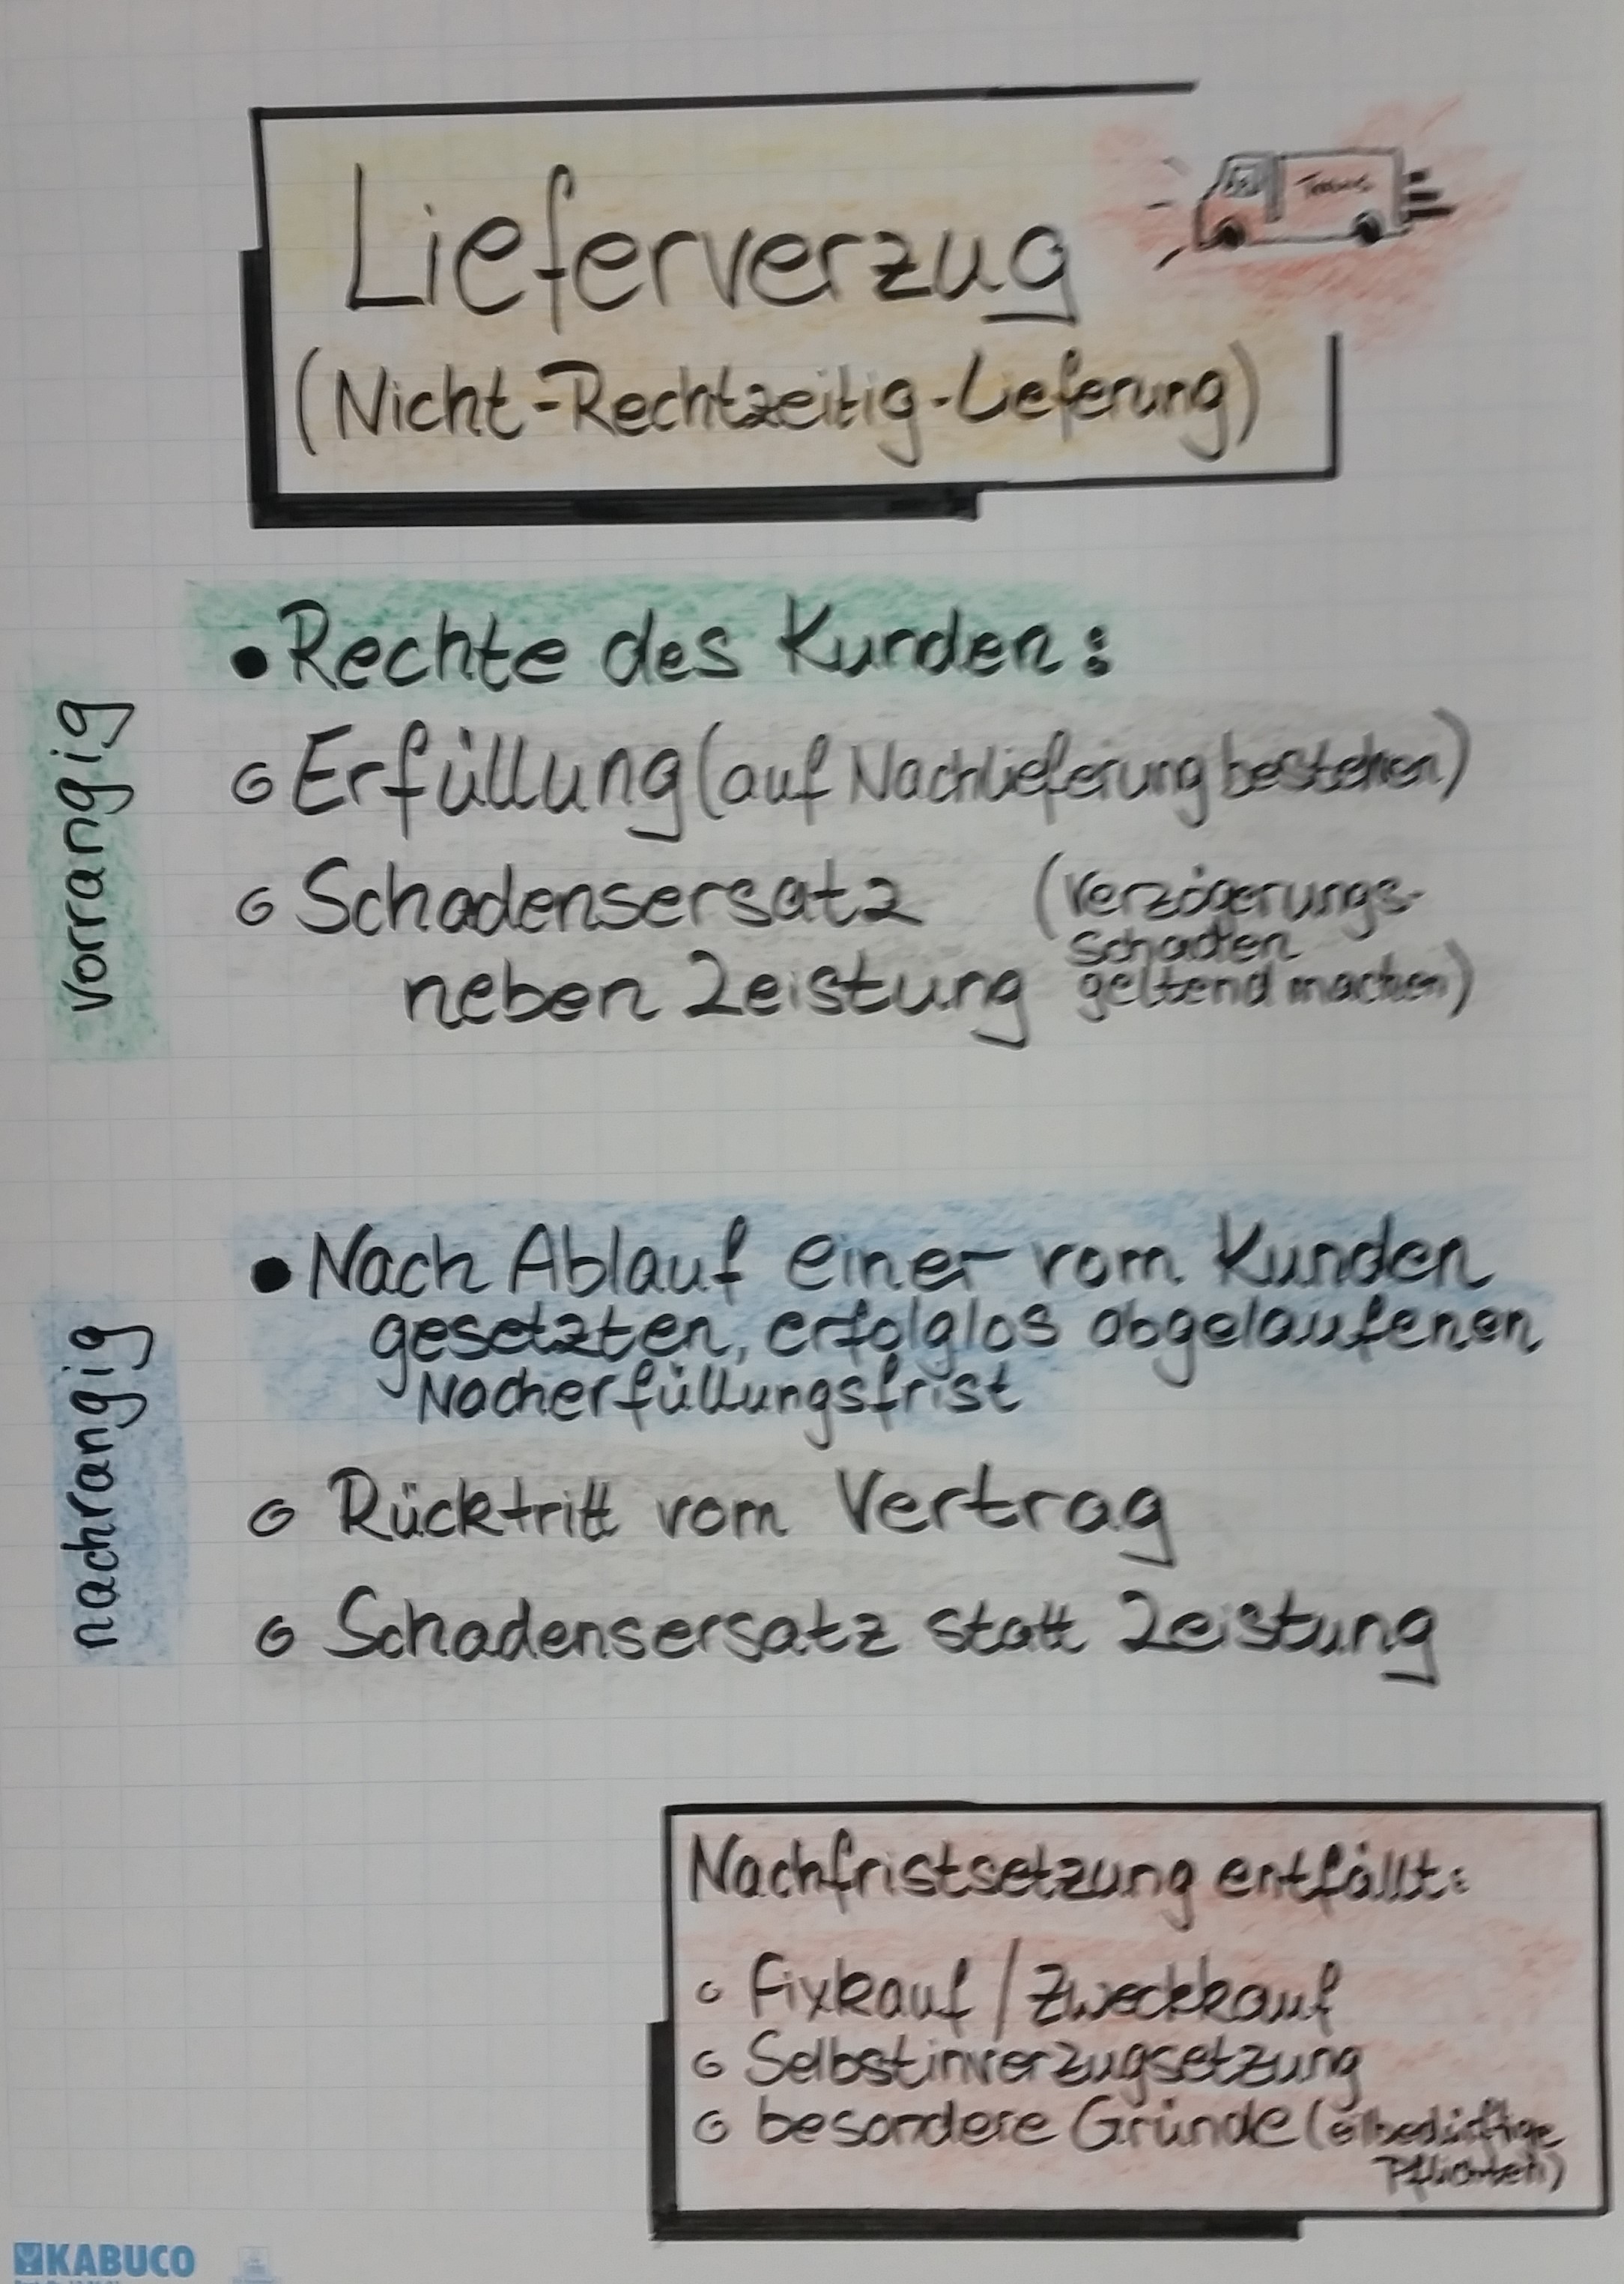 Lieferverzug
Trans
(Nicht-Rechtzeitig-Lieferung)
• Rechte des Kunden:
vorrangig
Erfüllung (auf Nachlieferung bestehen)
Schadensersatz (Verzögerungs-
schaden
neben Leistung geltend machen)
• Nach Ablauf einer vom Kunden
gesetzten, erfolglos abgelaufenen
Nacherfüllungsfrist
nachrangig
Rücktritt vom Vertrag
Schadensersatz statt Leistung
Nachfristsetzung entfällt:
Fixkauf / Zweckkauf
Selbstinverzugsetzung
besondere Gründe (eilbedürftige
Pflichten)
KABUCO